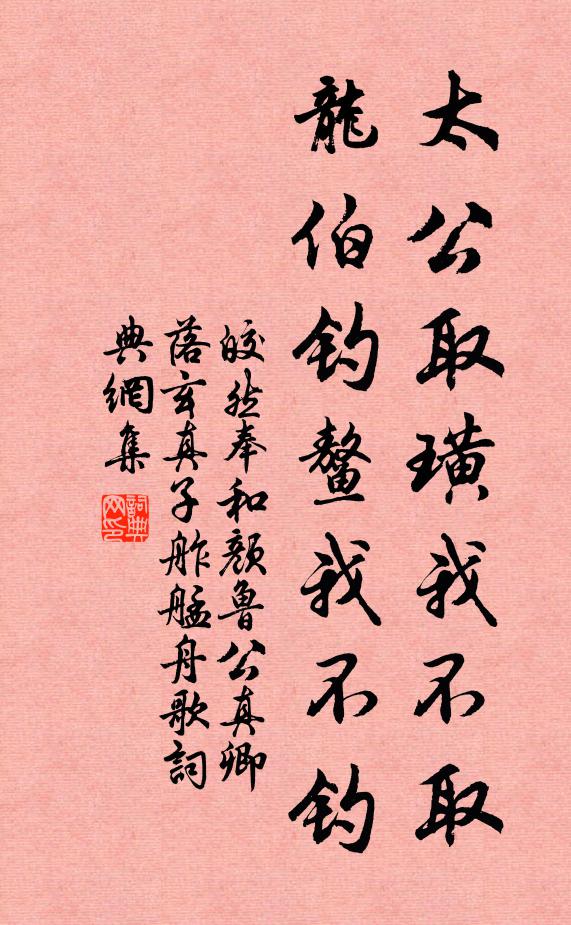 太公取璜我不取
龍伯釣鰲我不釣
皎然奉和顏魯公真卿
落玄真子舴艋舟歌詞
典網集
詞典
网印